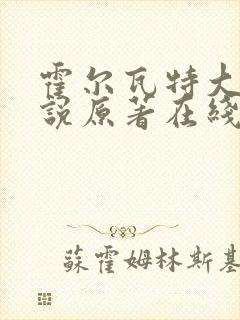 霍尔瓦特大
説原著在綫
蘇霍姆林斯基